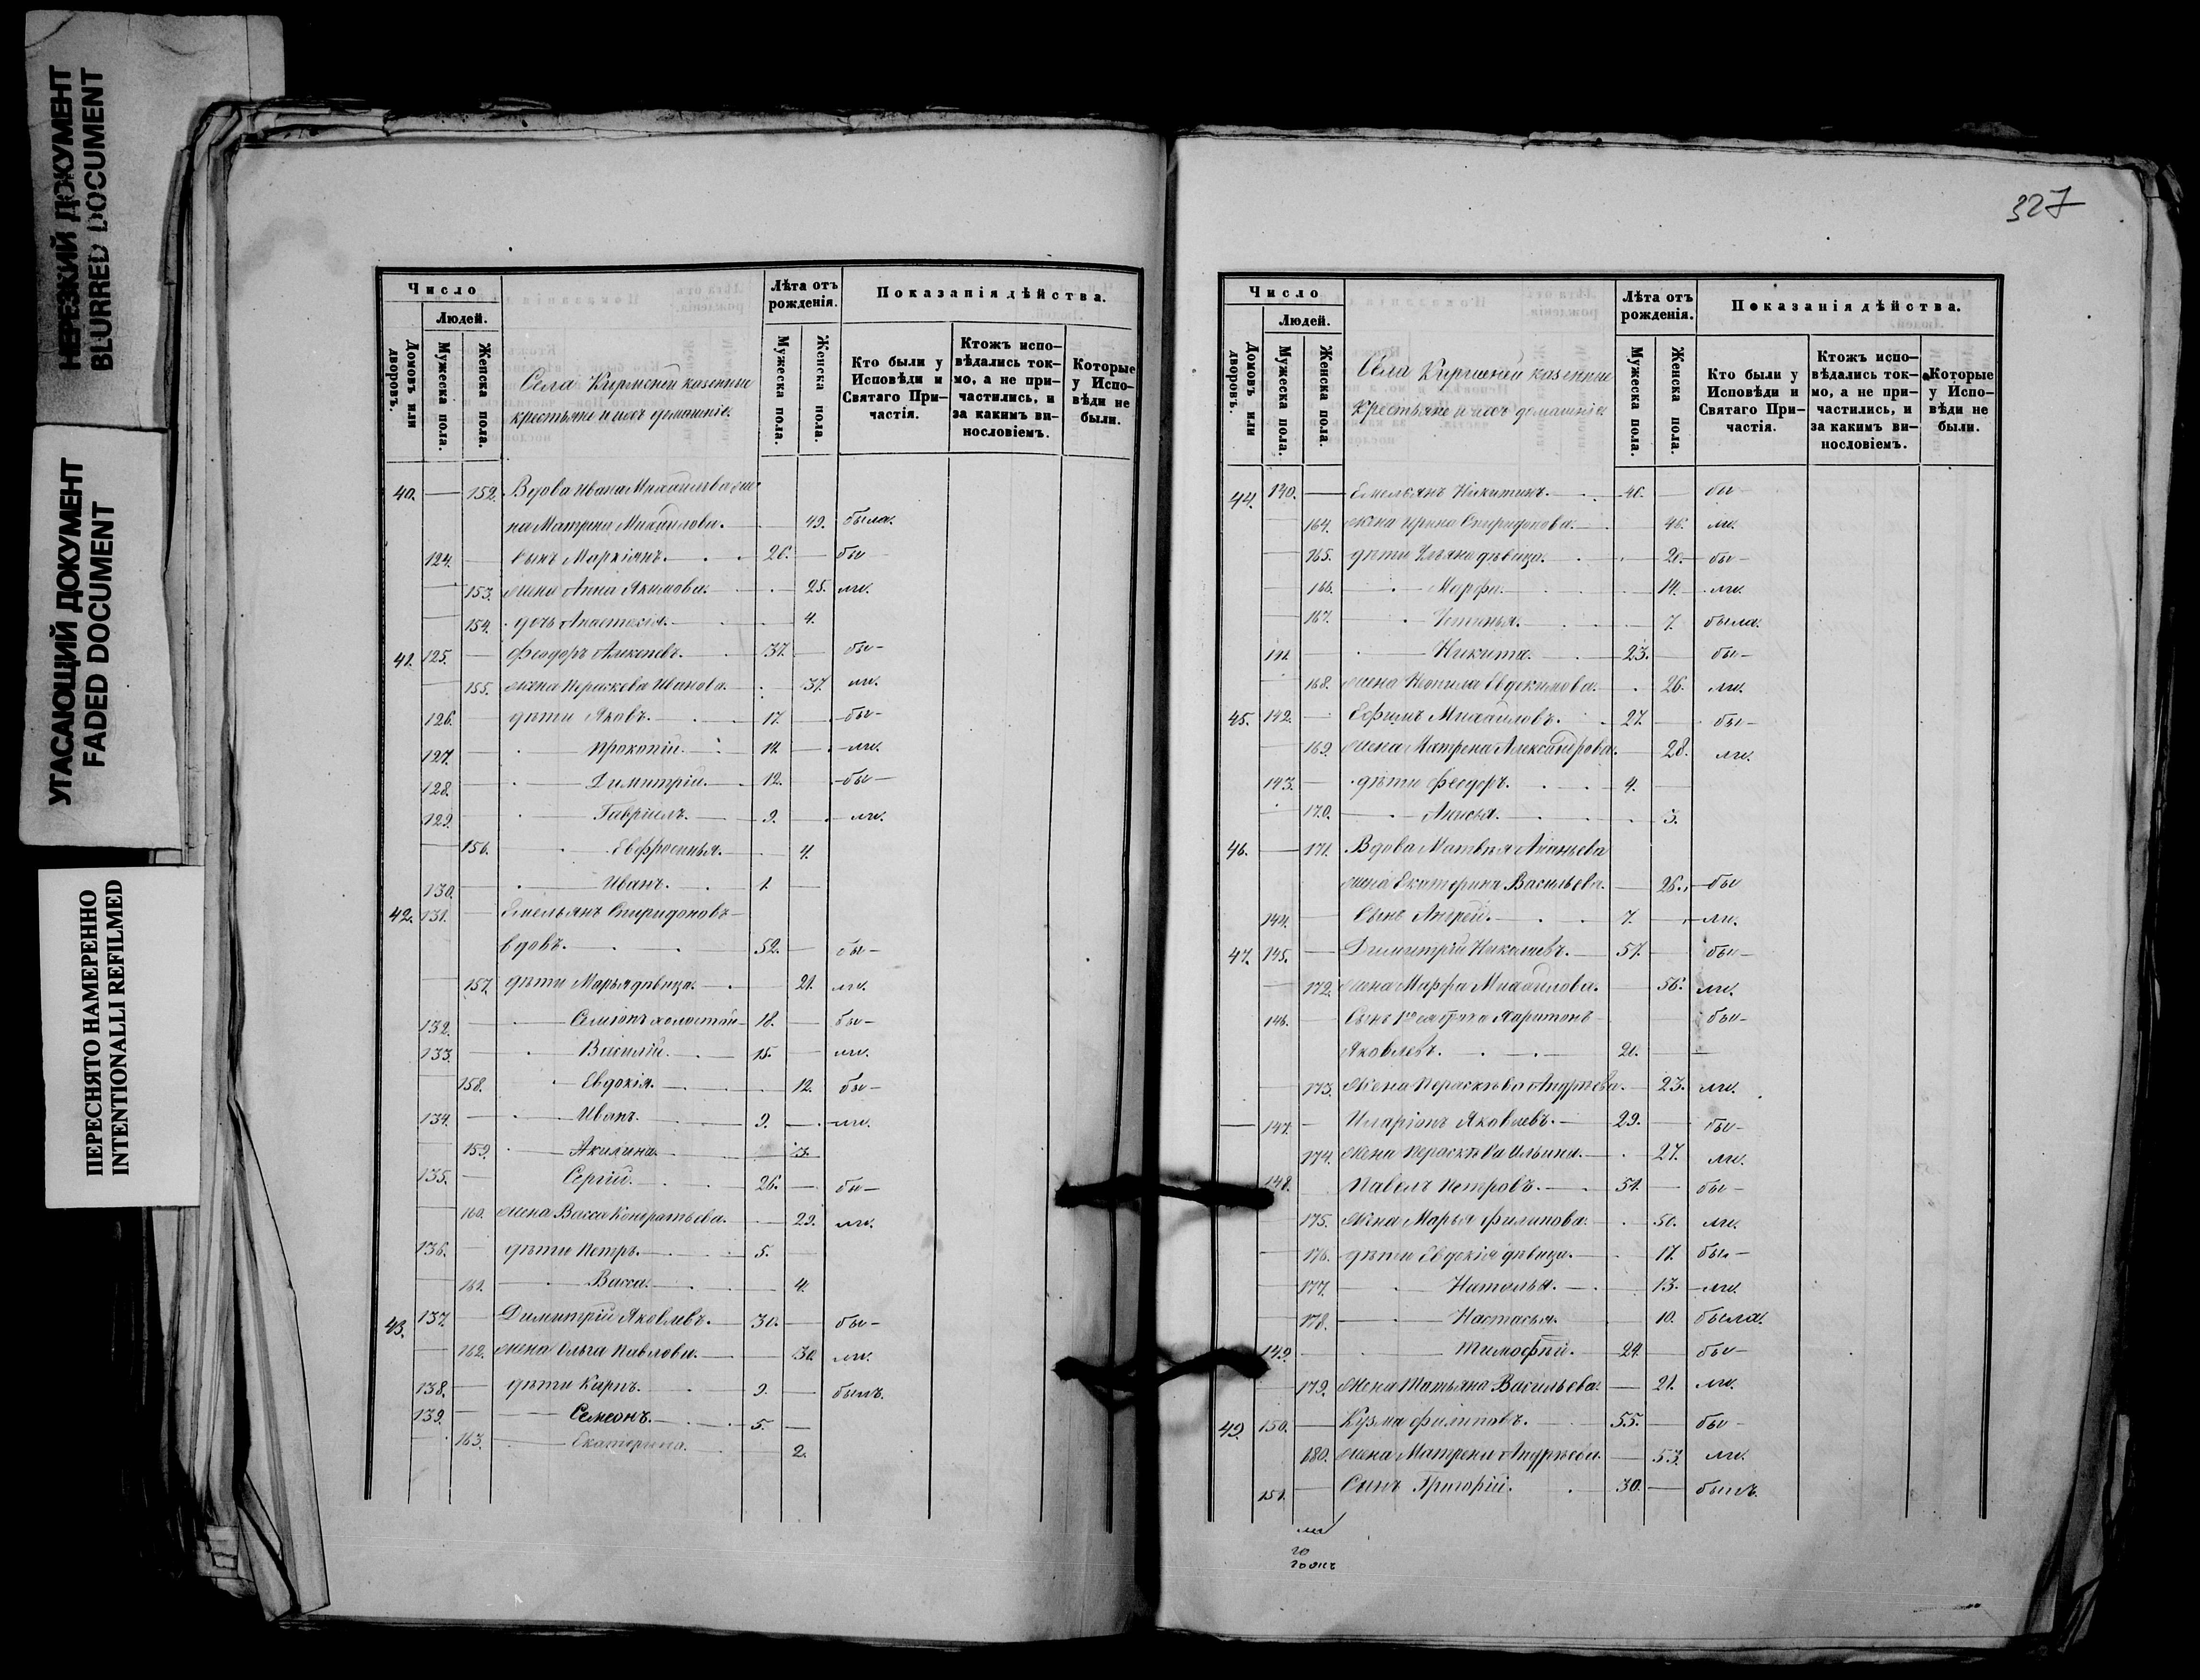 НЕРЕЗКИЙ ДОКУМЕНТ
BLURRED DOCUMENT
УГАСАЮЩИЙ ДОКУМЕНТ
FADED DOCUMENT
ПЕРЕСНЯТО НАМЕРЕННО
INTENTIONALLI REFILMED
Число
Людей.
Домовъ или дворовъ.
Мужеска пола.
Женска пола.
Села казенные
крестьяне и ихъ домашніе.
Лѣта отъ рожденія.
Мужеска пола.
Женска пола.
Показанія дѣйства.
Кто были у Исповѣди и Святаго Причастія.
Ктожъ исповѣдались токмо, а не причастились, и за какимъ винословіемъ.
Которые у Исповѣди не были.
40. 152. Вдова Ивана Михайлова жена
Матрона Михайлова. 49. была.
124. Сынъ Маркіанъ. 26. бы
153. жена Анна Якимова. 25. ли.
154. дочь Анастасія. 4.
41. 125. Феодоръ Алексѣевъ. 37. бы
155. жена Параскева Иванова. 37. ли.
126. дѣти Яковъ. 17. бы
127. Прокопій. 14. ли.
128. Димитрій. 12. бы
129. Гавріилъ. 9. ли.
156. Евфросинья. 4.
130. Иванъ. 1.
42. 131. Емельянъ Спиридоновъ
вдовъ. 52. бы
157. дѣти Марья дѣвица. 21. ли.
132. Семіонъ холостой 18. бы
133. Василій. 15. ли.
158. Евдокія. 12. бы
134. Иванъ. 9. ли.
159. Акилина. 3.
135. Сергій. 26. бы
160. жена Васса Кондратьева. 29. ли.
136. дѣти Петръ. 5.
161. Васса. 4.
43. 137. Димитрій Яковлевъ. 30. бы
162. жена Ольга Павлова. 30. ли.
138. дѣти Карпъ. 9. былъ.
139. Семеонъ. 5.
163. Екатерина. 2.
327
Число
Людей.
Домовъ или дворовъ.
Мужеска пола.
Женска пола.
Села казенные
крестьяне и ихъ домашніе
Лѣта отъ рожденія.
Мужеска пола.
Женска пола.
Показанія дѣйства.
Кто были у Исповѣди и Святаго Причастія.
Ктожъ исповѣдались токмо, а не причастились, и за какимъ винословіемъ.
Которые у Исповѣди не были.
44. 140. Емельянъ Никитинъ. 46. бы
164. жена Ирина Спиридонова. 46. ли.
165. дѣти Ульяна дѣвица. 20. бы
166. Марфа. 14. ли.
167. Устинья. 7. была.
141. Никита. 23. бы
168. жена Неонила Евдокимова. 26. ли.
45. 142. Ефимъ Михайловъ. 27. бы
169. жена Матрена Александрова. 28. ли.
143. дѣти Феодоръ. 4.
170. Анисья. 3.
46. 171. Вдова Матвѣя Ананьева
жена Екатерина Васильева. 26. бы
144. Сынъ Андрей. 7. ли.
47. 145. Димитрій Николаевъ. 57. бы
172. жена Марфа Михайлова. 56. ли.
146. Сынъ Харитонъ бы
Яковлевъ. 20.
173. жена Параскѣва Андрѣева. 23. ли.
147. Иларіонъ Яковлевъ. 29. бы
174. жена Параскѣва Ильина. 27. ли.
148. Павелъ Петровъ. 51. бы
175. жена Марья Филипова. 50. ли.
176. дѣти Евдокія дѣвица. 17. бы
177. Наталья. 13. ли.
178. Настасья. 10. была.
149. Тимофѣй. 24. бы
179. жена Татьяна Васильева. 21. ли.
49. 150. Кузма Филиповъ. 55. бы
180. жена Матрена Андрѣева. 53. ли.
151. Сынъ Григорій. 30. былъ.